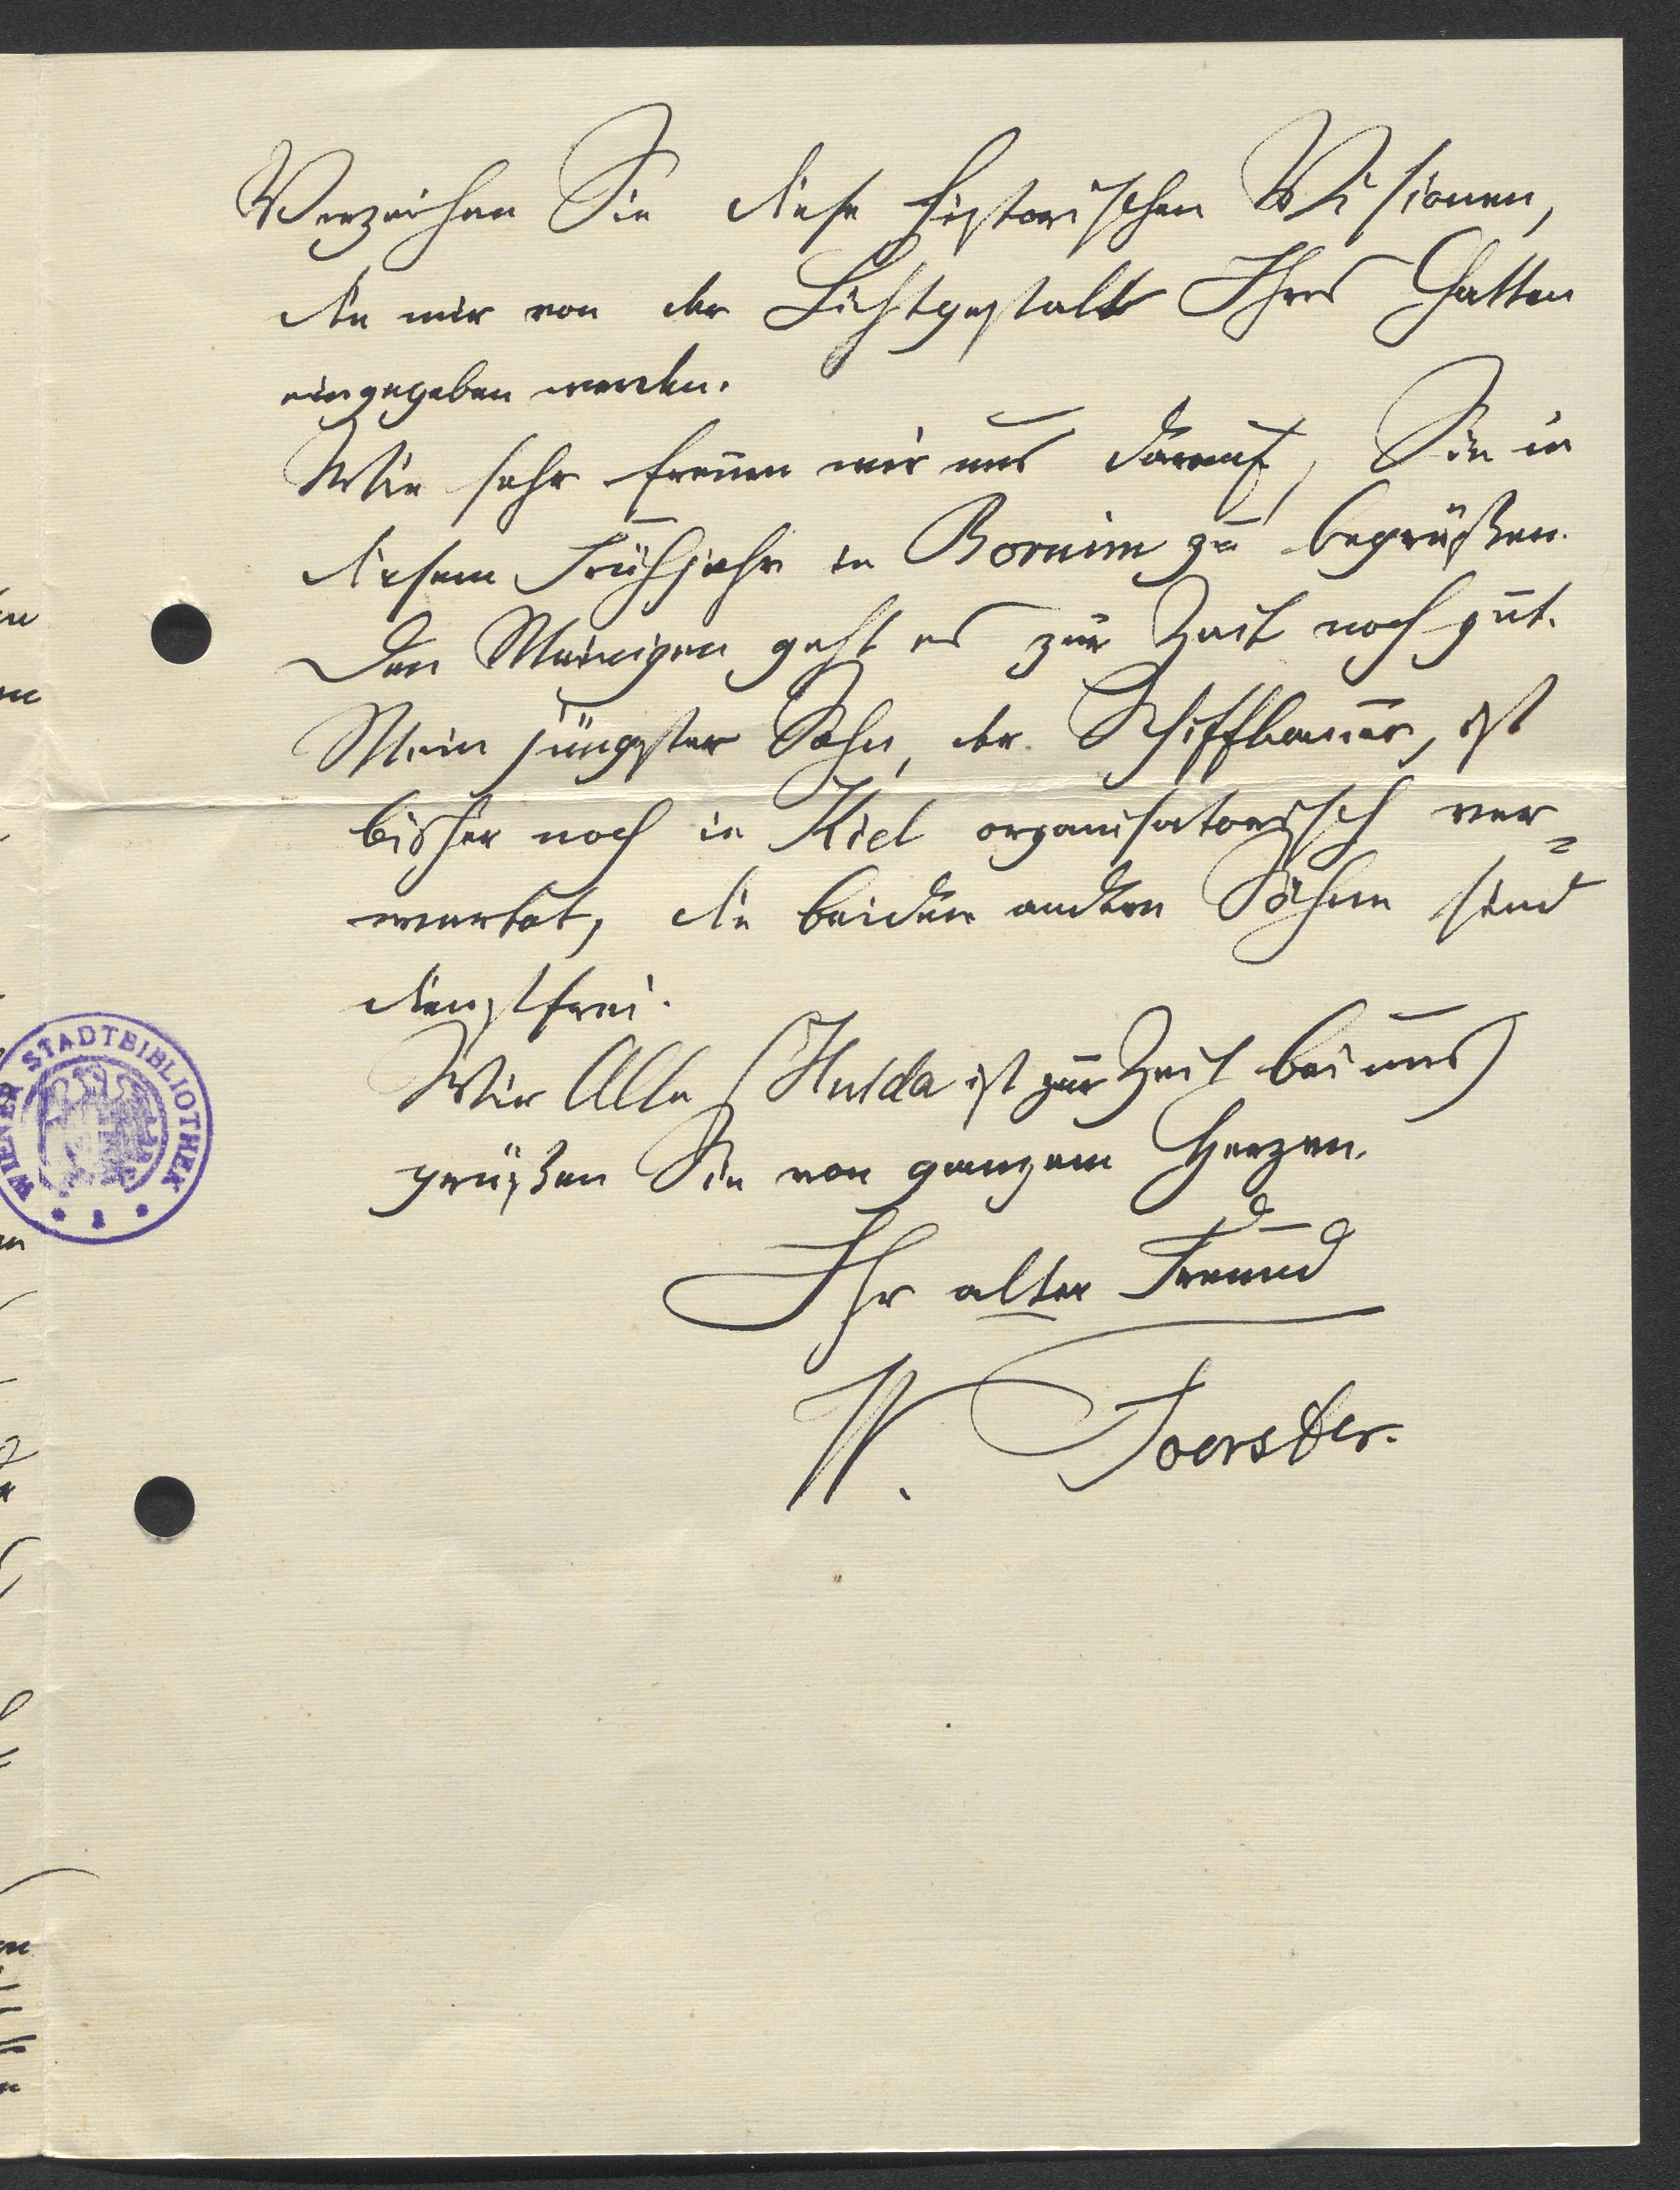 Verzeihen Sie diese historischen Visionen,
die mir von der Lichtgestalt Ihres Gatten
eingegeben werden.
Wie sehr freuen wir uns darauf, Sie in
diesem Frühjahr in Bornim zu begrüßen.
Den Meinigen geht es zur Zeit noch gut.
Mein jüngster Sohn, der Schiffbauer, ist
bisher noch in Kiel organisatorisch ver=
wertet, die beiden andern Söhne sind
dienstfrei.
Wir Alle (Hulda ist zur Zeit bei uns)
grüßen Sie von ganzem Herzen.
Ihr alter Freund
W. Foerster.
WIENER STADTBIBLIOTHEK